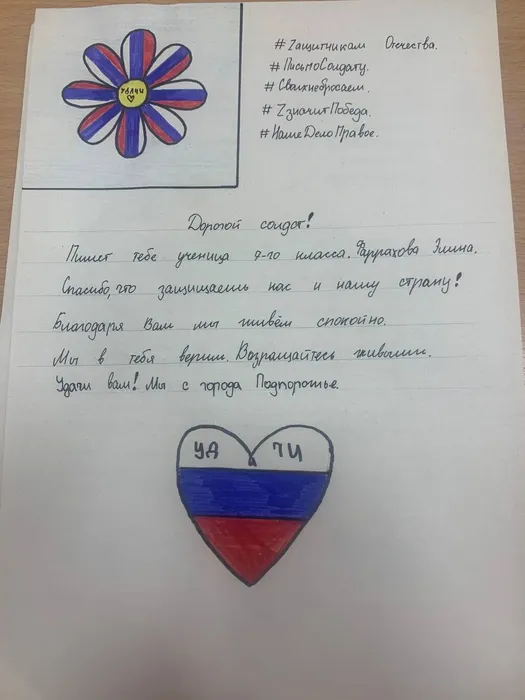 УДАЧИ
#Zащитникам Отечества.
#ПисьмоСолдату.
#Своихнебросаем.
#ZзначитПобеда.
#НашеДелоПравое.
Дорогой солдат!
Пишет тебе ученица 9-го класса. Фаррахова Элина.
Спасибо, что защищаешь нас и нашу страну!
Благодаря Вам мы живём спокойно.
Мы в тебя верим. Возращайтесь живыми.
Удачи вам! Мы с города Подпорожье.
УДАЧИ